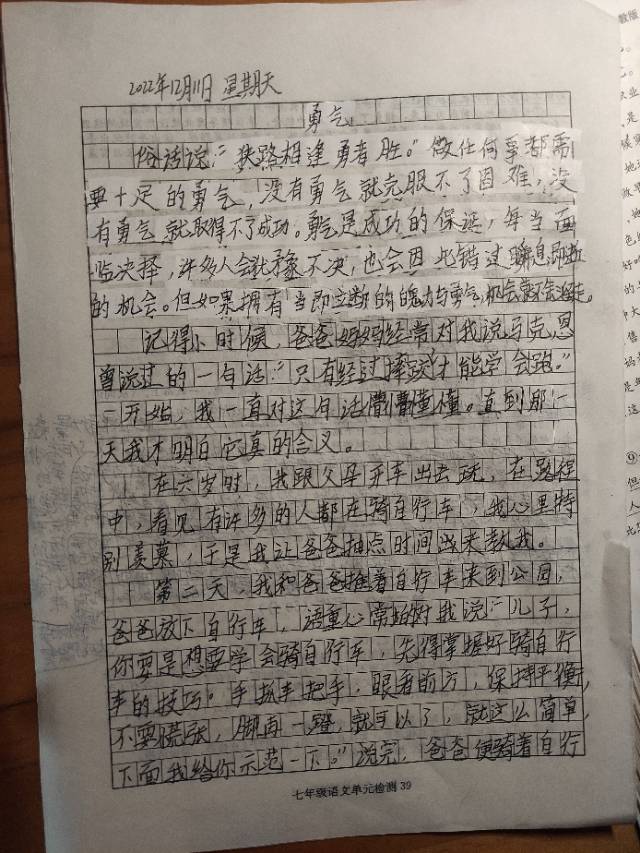 2022年12月11日 星期天
勇气
俗话说:“狭路相逢勇者胜。”做任何事都需
要十足的勇气,没有勇气就克服不了困难,没
有勇气就取得不了成功。勇气是成功的保证,每当面
临决择,许多人会犹豫不决,也会因此错过瞬息即逝
的机会。但如果拥有当即立断的魄力与勇气,机会就不会
记得小时候,爸爸妈妈经常对我说马克思
曾说过的一句话:“只有经过摔跤才能学会跑。”
一开始,我一直对这句话懵懵懂懂。直到那一
天我才明白它真的含义。
在六岁时,我跟父母开车出去玩,在路程
中,看见有许多的人都在骑自行车,我心里特
别羡慕,于是我让爸爸抽点时间来教我。
第二天,我和爸爸推着自行车来到公园,
爸爸放下自行车,语重心常地对我说:“儿子,
你要是想要学会骑自行车,先得掌握好骑自行
车的技巧。手抓车把手,眼看前方,保持平衡,
不要慌张,脚再一蹬,就可以了,就这么简单,
下面我给你示范一下。”说完,爸爸便骑着自行
七年级语文单元检测 39
教版